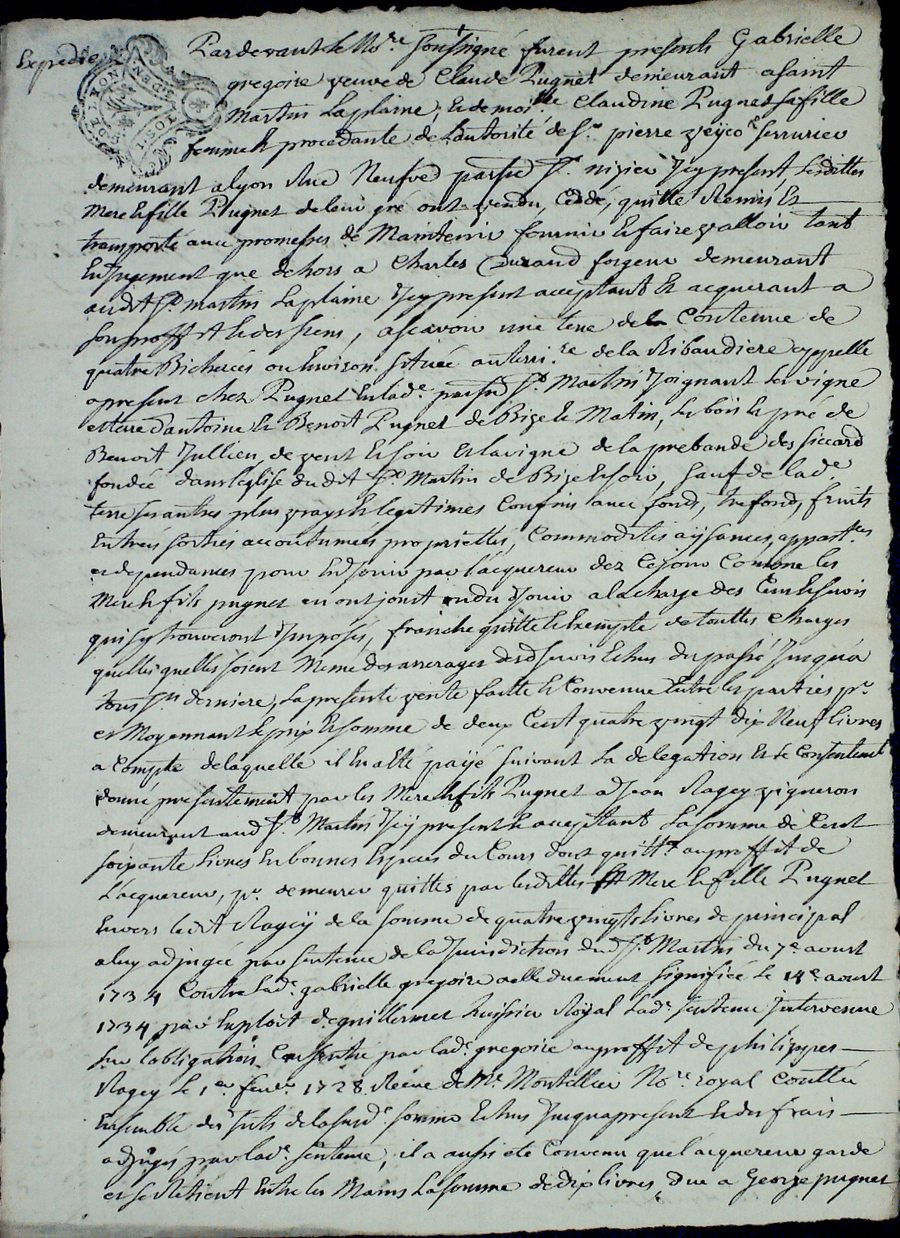 Expedié
Pardevant le No.re soussigné furent presents Gabrielle
gregoire veuve de Claude Pugnet demeurant a saint
Martin Laplaine, et demois.lle Claudine Pugnet sa fille
femme et procedante de l'autorité de S.r pierre serrurier
demeurant a lyon Rue Neufve parsse S.t nizier Icy present, lesdittes
Mere et fille Pugnet de leur gré ont vendu, Ceddé, quitté Remis Et
transporté avec promesses de Maintenir fournir et faire valloir tant
En Jugement que dehors a Charles Durand forgeur demeurant
audit S.t martin Laplaine Icy present acceptant et acquerant a
son proffit et des siens, ascavoir une terre de la Contenue de
quatre Bicherées ou Environ située au terri.re de la Ribaudiere appellé
apresent chez Pugnet En lad.e parsse S.t Martin Joignant la vigne
et terre d'antoine et Benoit Pugnet de Bize et Matin, les bois et pré de
Benoit Jullien, de vent et soir et la vigne de la prebande des siccard
fondée dans l'Eglise dudit S.t Martin de Bize et soir, sauf de lad.e
terre ses autres plus vrays et legitimes Confins avec fonds, trefonds, fruits
Entrées sorties accoutumées proprietés, Commodités aysances, appart.ces
et dependances pour En Jouir par l'acquereur dez Ce Jour Comme les
Mere et fils pugnet en ont jouit ou du Jouir a la charge des Cens et servis
qui s'y trouveront Imposés, franche quitte et Exempte de touttes charges
quelles quelles soient Meme des arrerages desd servis Echus du passé Jusqu'a
tous S.ts derniere, La presente vente faitte et Convenue Entre les parties p.r
et Moyennant le prix Et somme de deux Cent quatre vingt dix Neuf livres
a Compte de laquelle il En a Eté payé suivant La delegation Et le Consentement
donné presentement par les Mere et fils Pugnet a Jean Ragey vigneron
demeurant aud S.t Martin Icy present et acceptant La somme de Cent
soixante livres En bonnes Especes du Cours dont quitt.ce au proffit de
L'acquereur, p.r demeurer quittes par lesdittes Mere et fille Pugnet
Envers ledit Ragey de la somme de quatre vingts livres de principal
a luy adjugée par sentence de la Jurisdiction dud S.t Martin du 7.e aoust
1734 Contre lad.e gabrielle gregoire a elle duement signifiée Le 14.e aoust
1734 par Exploit de guillermet huissier Royal Lad.e sentence Intervenue
sur l'obligation Consentie par lad.e gregoire au proffit de philippes
Ragey le 1.er fevr. 1728 Receue de M.e Montellier No.re royal
Ensemble des Jnts de la susd.e somme Echus Jusqu'apresent et des frais
adjugés par lad.e sentence, il a aussi été Convenu que l'acquereur garde
et se Retient Entre les Mains La somme de dix livres due a George pugnet